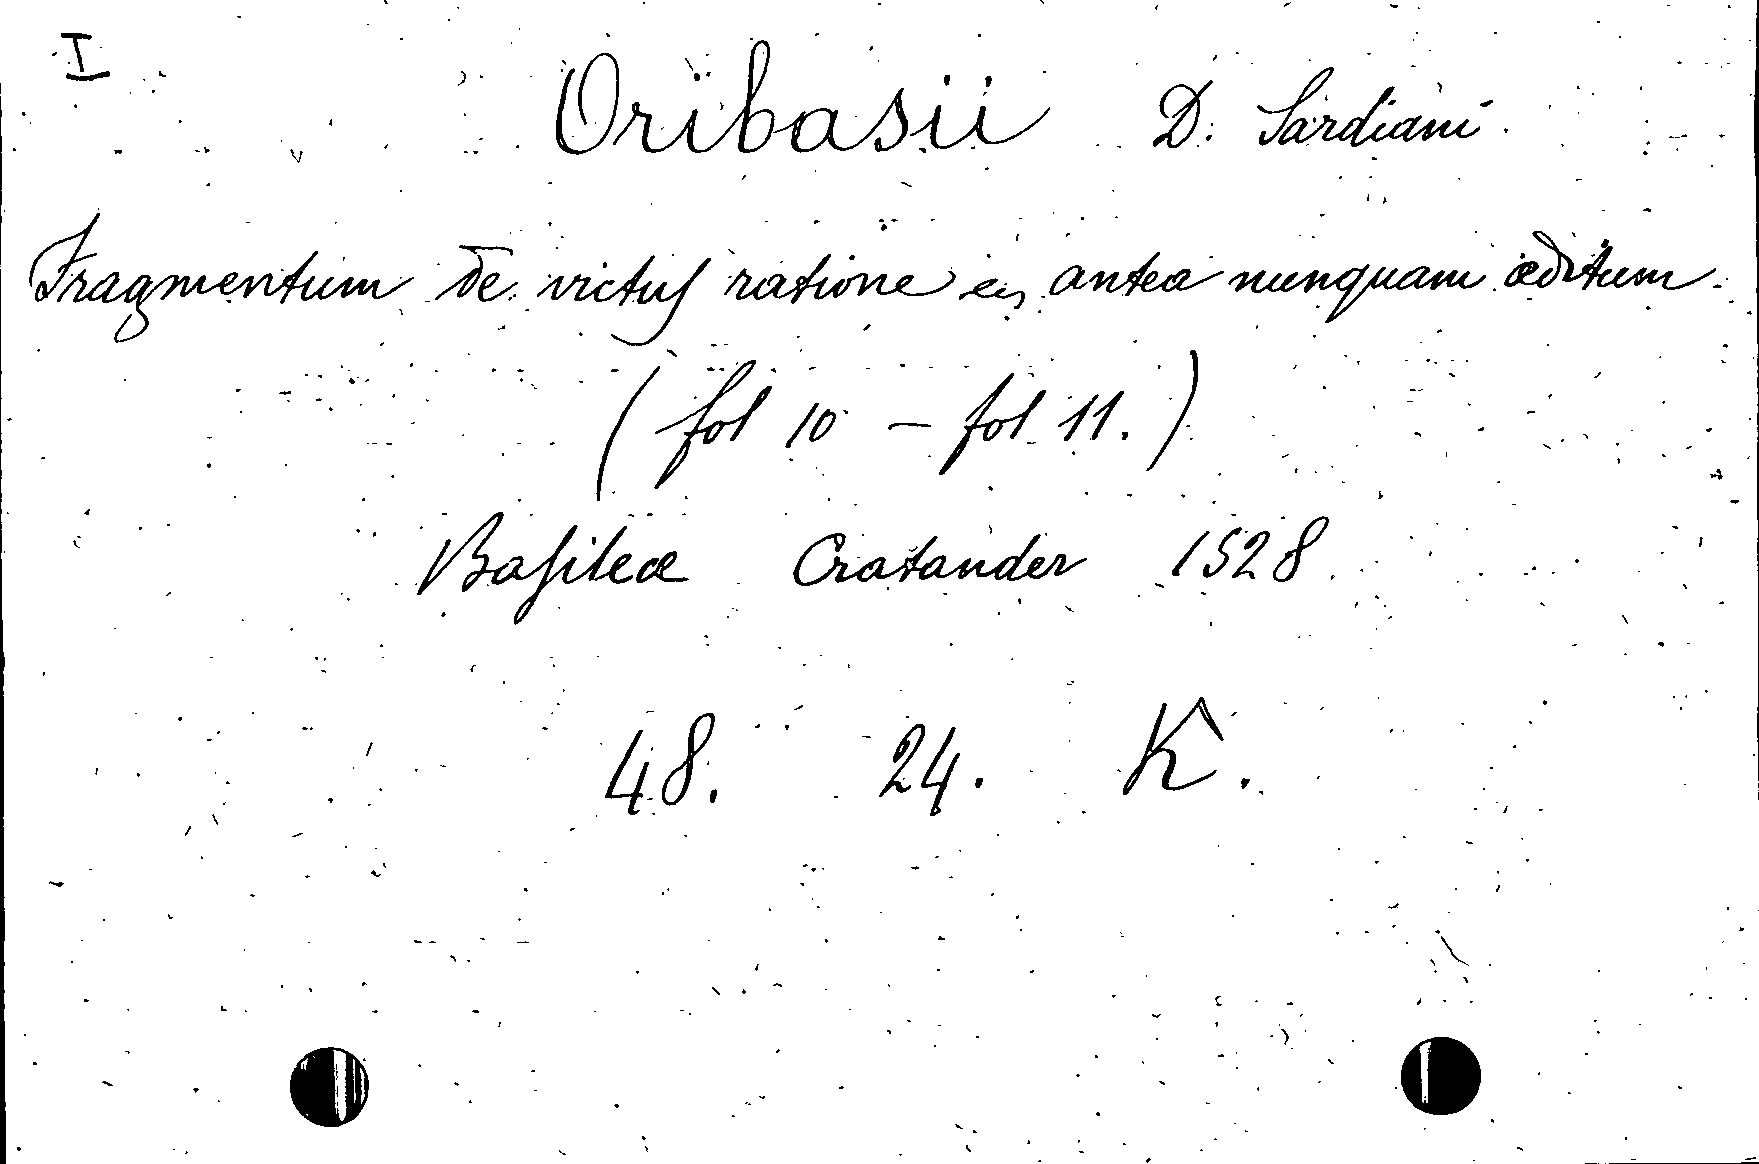 I
Oribasii D. Sardiani
Fragmentum de victuſ ratione antea nunquam æditum.
( fol 10 - fol 11. )
Baſileæ Cratander 1528
48. 24. K.